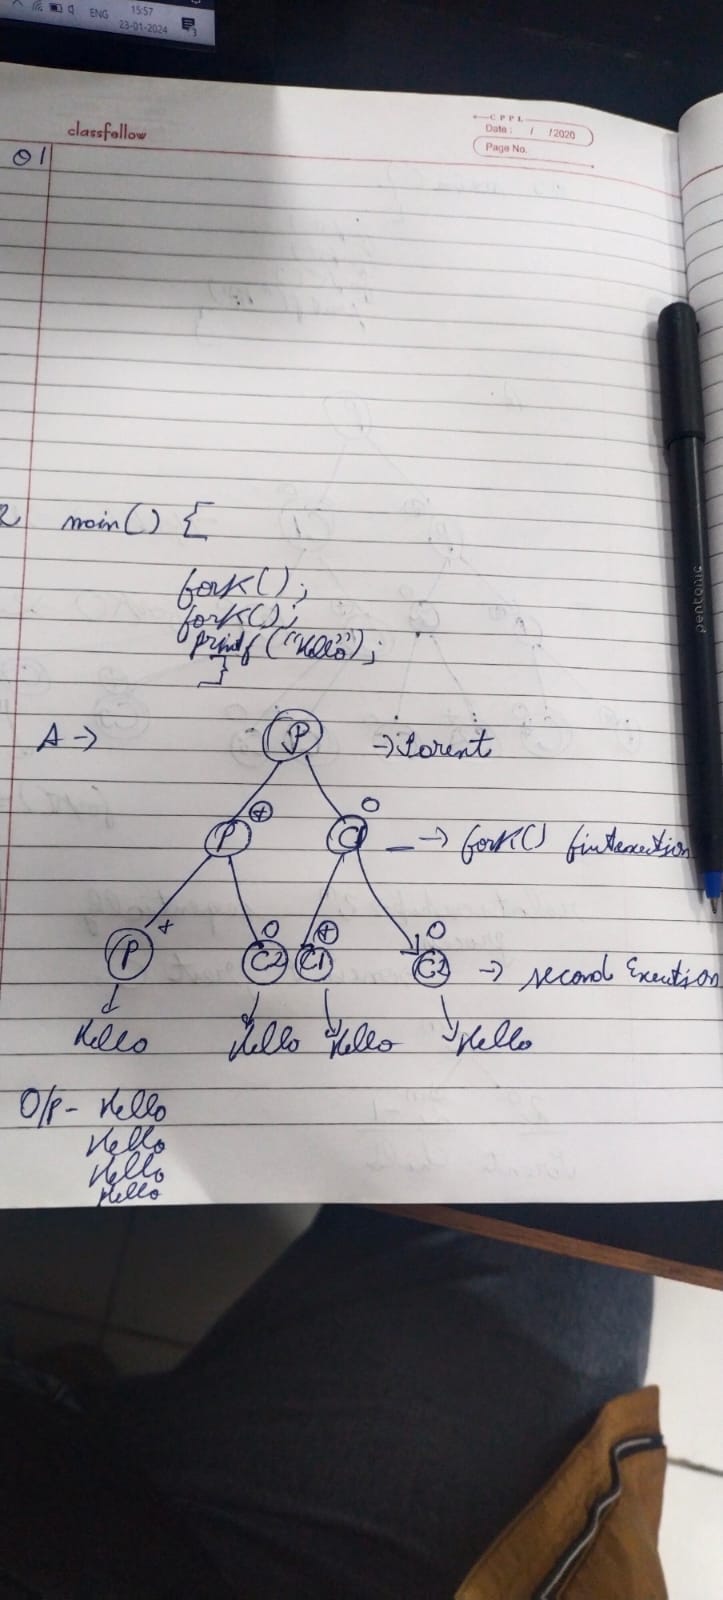 ENG 15:57
23-01-2024
3
classfollow
CPPL
Date : / /2020
Page No.
01
2 main() {
fork();
fork();
printf("Hello");
}
A → P → Parent
P + C1 0 → fork() first execution
P + C2 0 C1 + C2 0 → second Execution
Hello Hello Hello Hello
O/P - Hello
Hello
Hello
Hello
pentonic